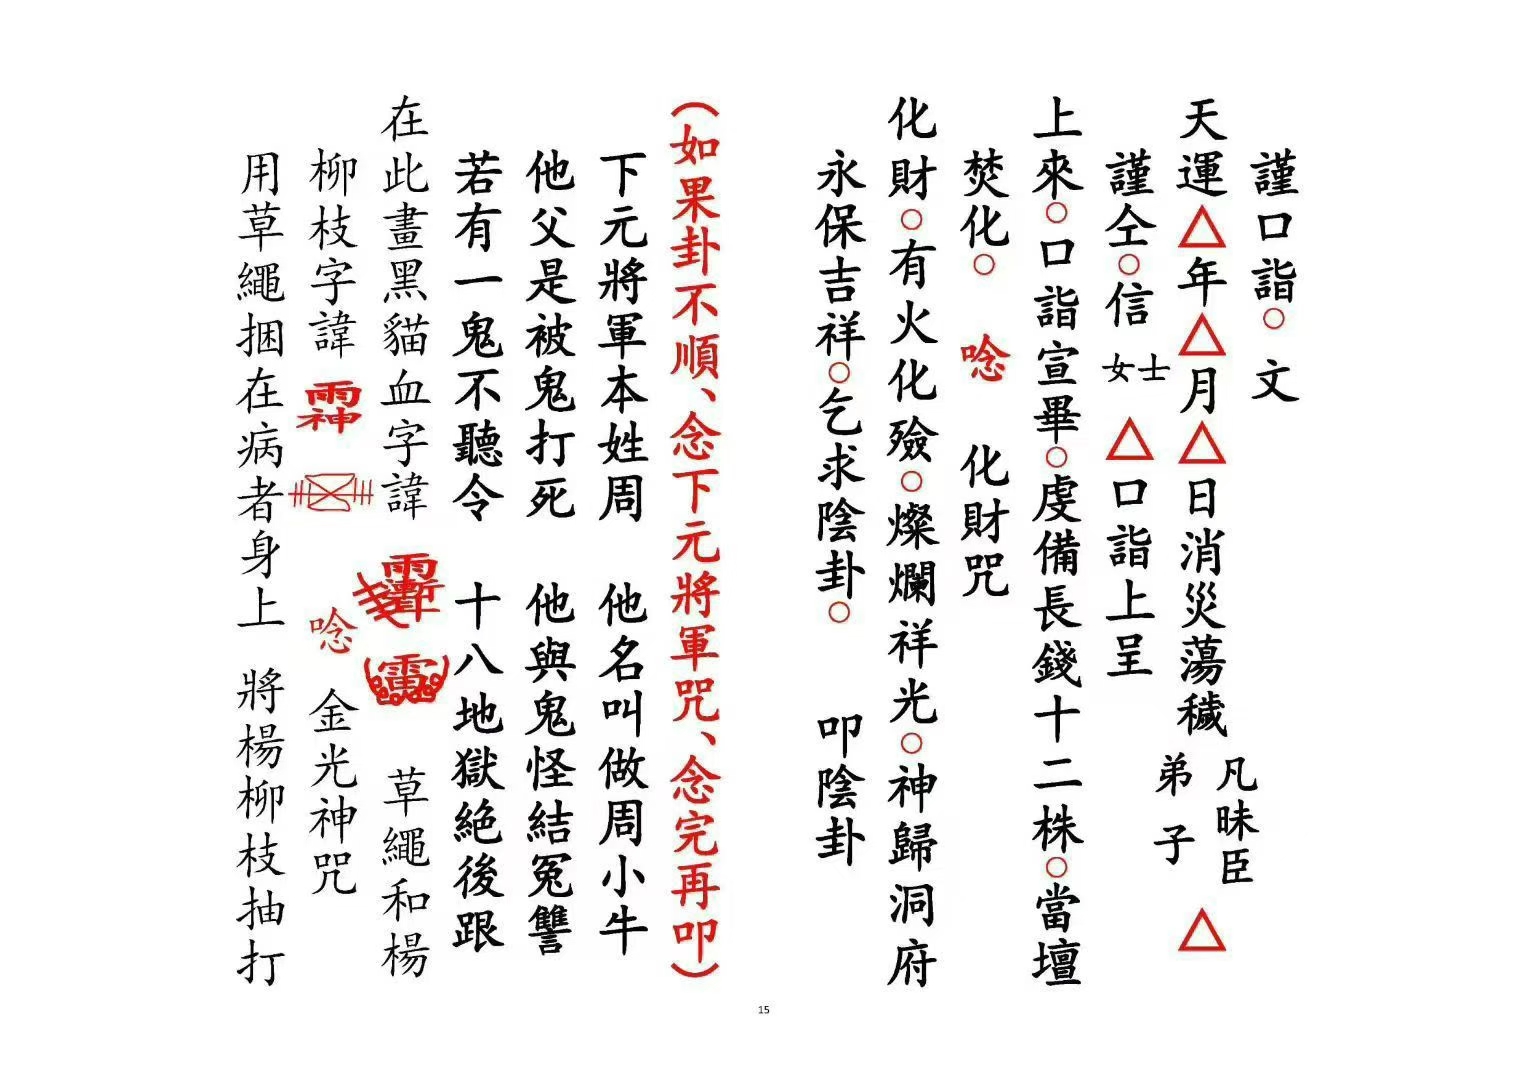 謹口詣○文
天運△年△月△日消災蕩穢
凡昧臣
弟子
△
謹仝○信
女士
△口詣上呈
上來○口詣宣畢○虔備長錢十二株○當壇
焚化○唸化財咒
化財○有火化殮○燦爛祥光○神歸洞府
永保吉祥○乞求陰卦○叩陰卦
(如果卦不順、念下元將軍咒、念完再叩)
下元將軍本姓周 他名叫做周小牛
他父是被鬼打死 他與鬼怪結冤讐
若有一鬼不聽令 十八地獄絶後跟
在此畫黑貓血字諱 草繩和楊
柳枝字諱 唸 金光神咒
用草繩捆在病者身上 將楊柳枝抽打
15